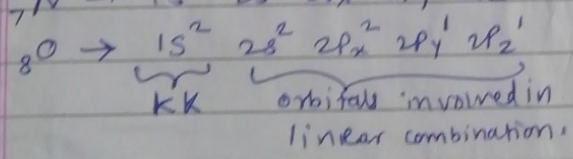 7
₈O → 1s² 2s² 2Px² 2Py¹ 2Pz¹
KK orbitals involved in
linear combination.